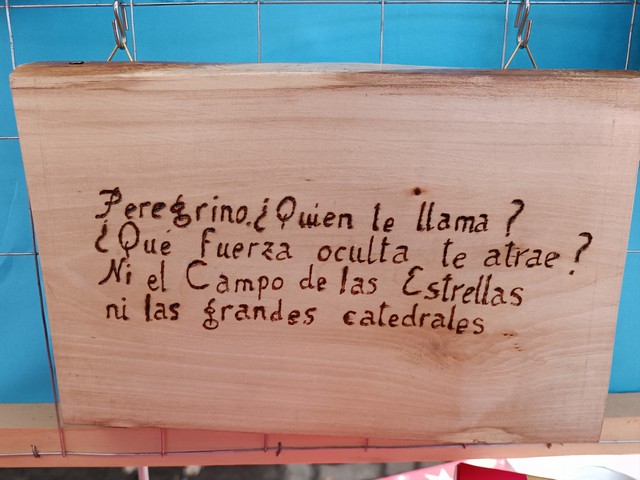 Peregrino.¿Quien te llama?
¿Qué fuerza oculta te atrae?
Ni el Campo de las Estrellas
ni las grandes catedrales